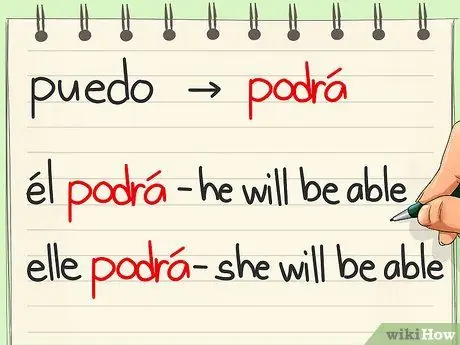 puedo → podrá
él podrá - he will be able
elle podrá - she will be able
wikiHow